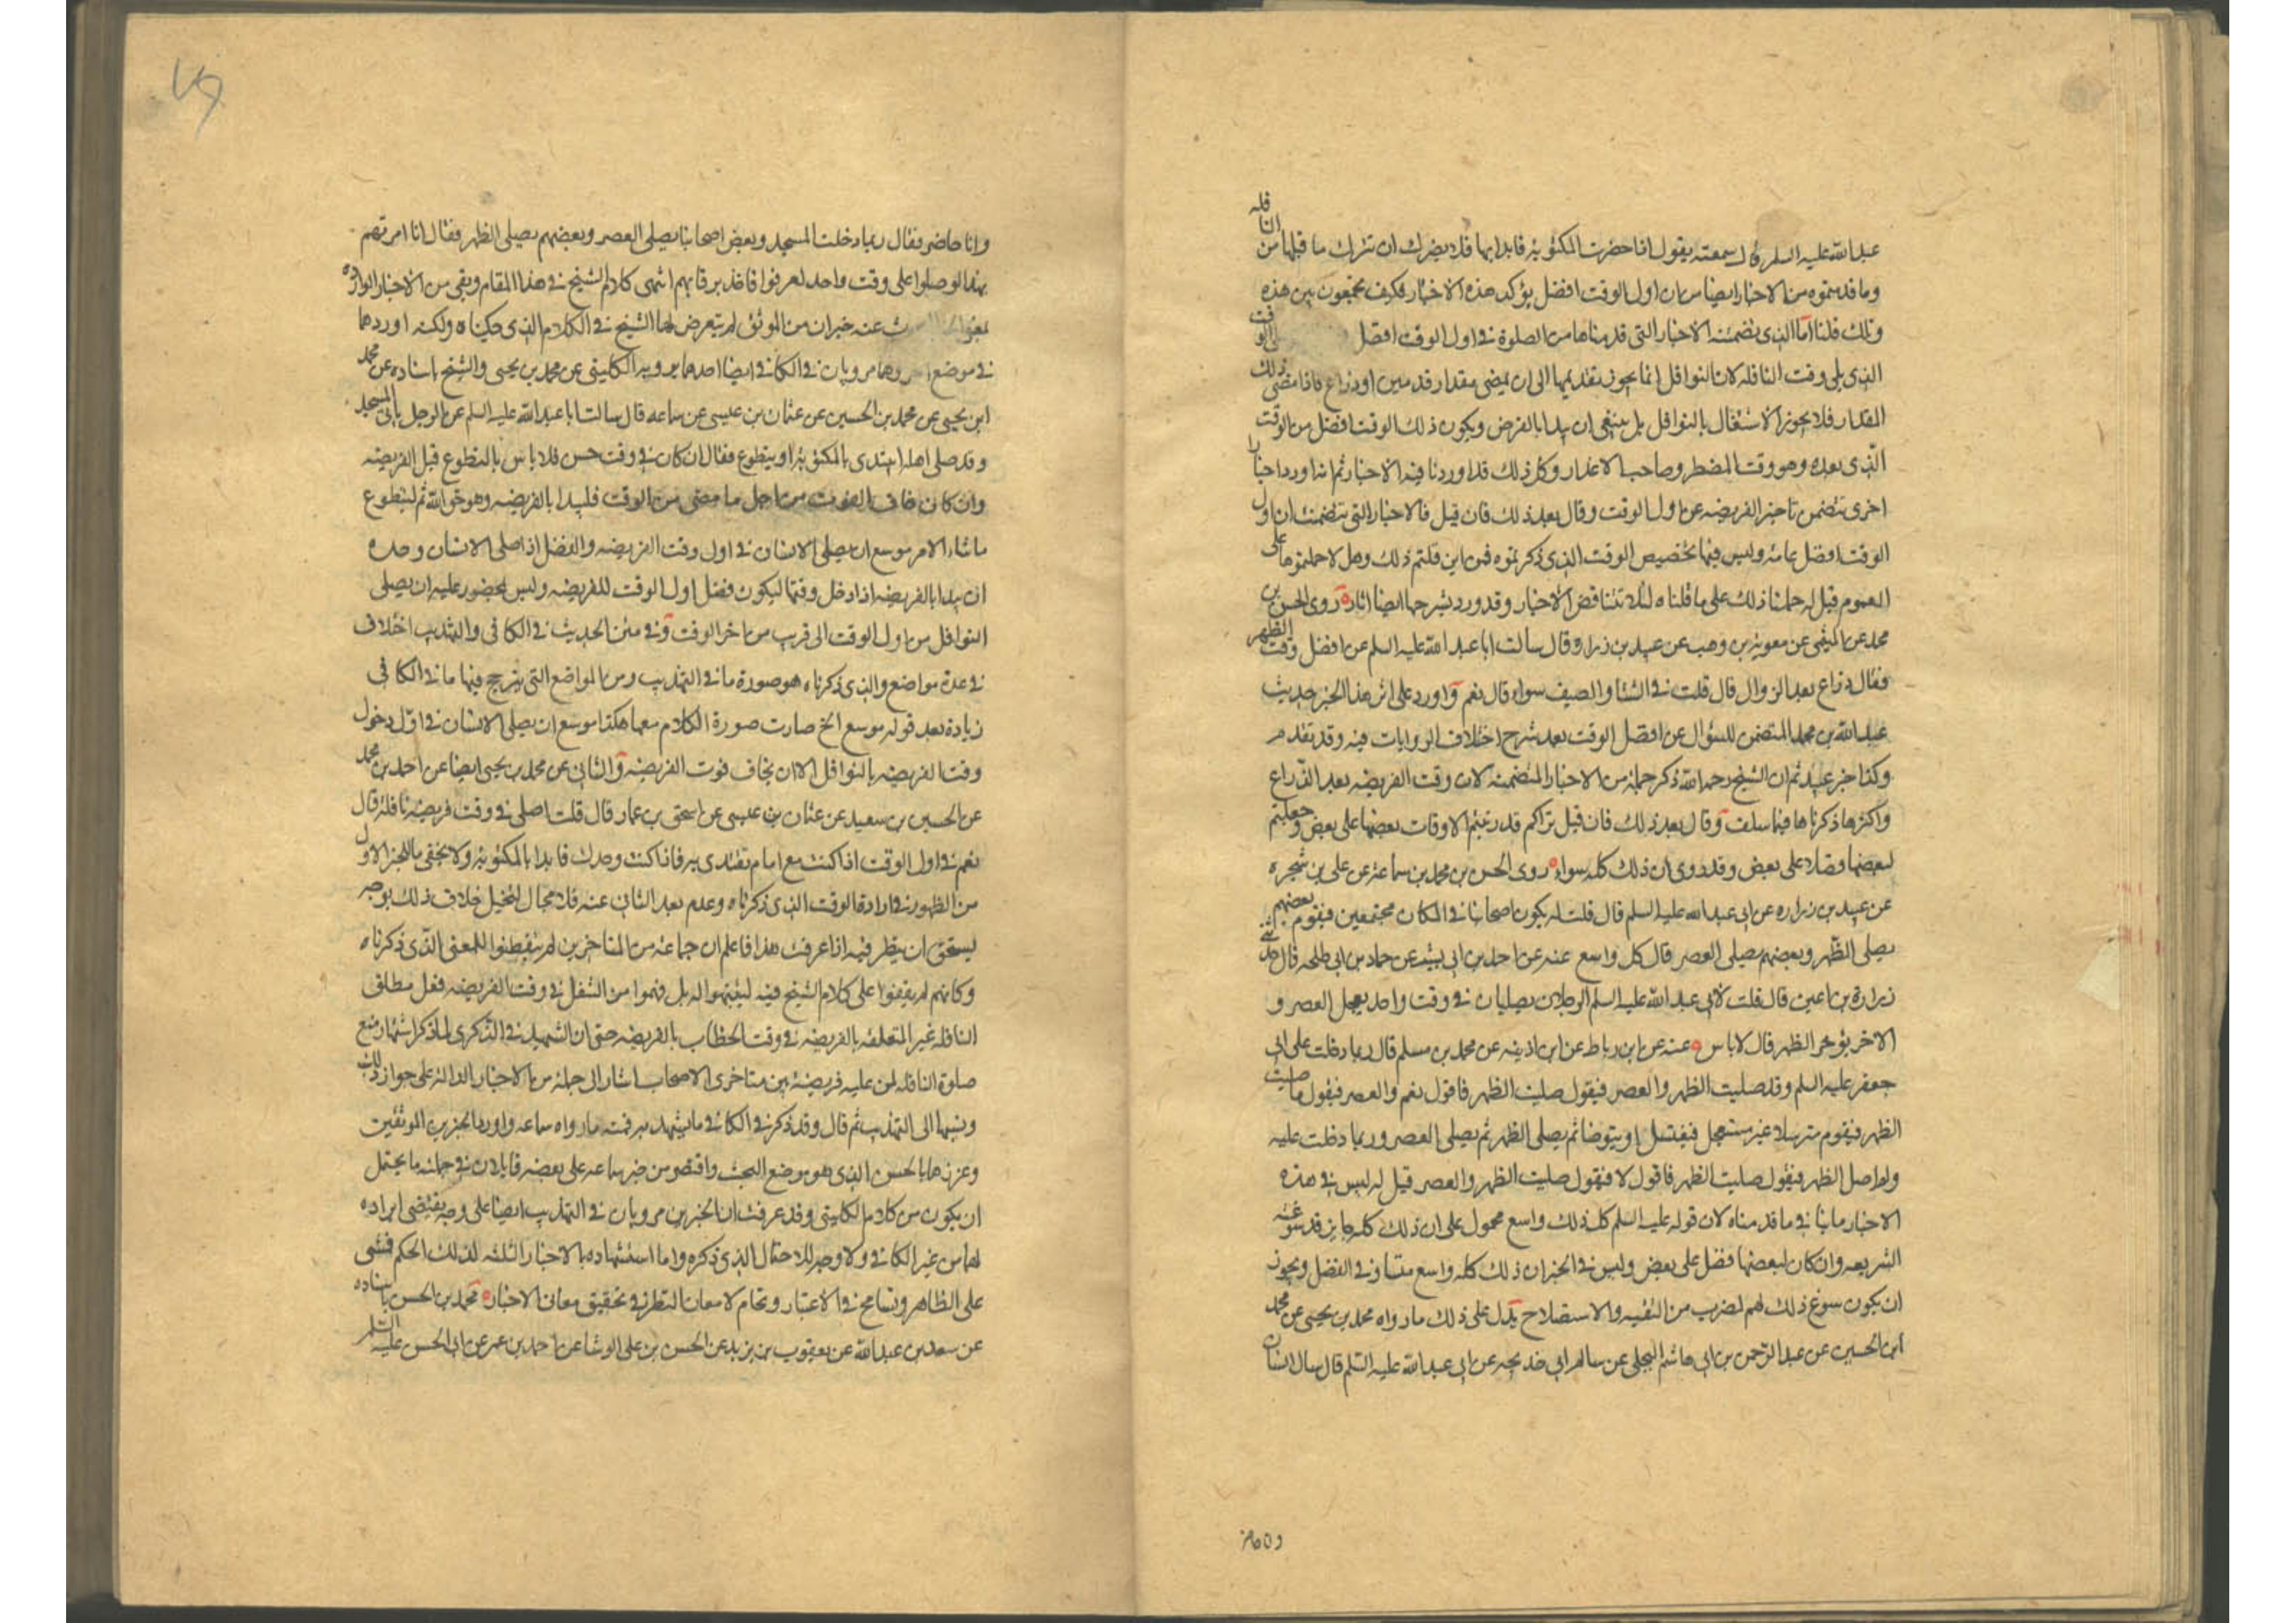 عبدالله عليه السلم قال سمعته يقول اذا حضرت المكتوبة فابدا بها فلا يضرك ان تترك ما قبلها من النافله
وما قدمتموه من الاخبار ايضا من ان اول الوقت افضل يؤكد هذه الاخبار فكيف تجمعون بين هذه
وتلك قلنا اما الذى تضمنته الاخبار التى قدمناها من الصلوة فى اول الوقت افضل الوقت
الذى يلى وقت النافله لان النوافل انما يجوز تقديمها الى ان يمضى مقدار قدمين او ذراع فاذا مضى ذلك
المقدار فلا يجوز الاشتغال بالنوافل بل ينبغى ان يبدا بالفرض ويكون ذلك الوقت افضل من الوقت
الذى بعده وهو وقت المضطر وصاحب الاعذار وكل ذلك قد اوردنا فيه الاخبار ثم انه اورد اخبارا
اخرى تتضمن تاخير الفريضه عن اول الوقت وقال بعد ذلك فان قيل فالاخبار التى تتضمنت ان اول
الوقت افضل عامة وليس فيها تخصيص الوقت الذى ذكرتموه فمن اين قلتم ذلك وهل لا حملتموها على
العموم قيل له حملنا ذلك على ما قلناه لئلا تتناقض الاخبار وقد ورد بشرحها ايضا اثاره روى الحسن بن
محمد عن الميثمى عن معوية بن وهب عن عبيد بن زراره قال سالت ابا عبدالله عليه السلم عن افضل وقت الظهر
فقال ذراع بعد الزوال قال قلت فى الشتا والصيف سواء قال نعم واورد على اثر هذا الخبر حديث
عبدالله بن محمد المتضمن للسؤال عن افضل الوقت بعد شرح اختلاف الروايات فيه وقد تقدم
وكذا خبر عبيد ثم ان الشيخ رحمه الله ذكر جملة من الاخبار المتضمنه لان وقت الفريضه بعد الذراع
واكثرها ذكرناها فيما سلف وقال بعد ذلك فان قيل نراكم قد رتبتم الاوقات بعضها على بعض وجعلتم
لبعضها فضلا على بعض وقد روى ان ذلك كله سواء روى الحسن بن محمد بن سماعة عن على بن شجره
عن عبيد بن زراره عن ابى عبدالله عليه السلم قال قلت له يكون اصحابنا فى المكان مجتمعين فيقوم بعضهم
يصلى الظهر وبعضهم يصلى العصر قال كل واسع عنه عن احمد بن ابى بشر عن حماد بن ابى طلحه قال حدثنى
زرارة بن اعين قال قلت لابى عبدالله عليه السلم الرجلان يصليان فى وقت واحد يعجل العصر و
الاخر يؤخر الظهر قال لا باس وعنه عن ابن رباط عن ابن اذينه عن محمد بن مسلم قال ربما دخلت على ابى
جعفر عليه السلم وقد صليت الظهر والعصر فيقول صليت الظهر فاقول نعم والعصر فيقول ما صليت
الظهر فيقوم مترسلا غير مستعجل فيغتسل او يتوضا ثم يصلى الظهر ثم يصلى العصر وربما دخلت عليه
ولم اصل الظهر فيقول صليت الظهر فاقول لا فيقول صليت الظهر والعصر قيل له ليس فى هذه
الاخبار ما ينافى ما قدمناه لان قوله عليه السلم كل ذلك واسع محمول على ان ذلك كله جايز قد سوغته
الشريعه وان كان لبعضها فضل على بعض وليس فى الخبر ان ذلك كله واسع متساو فى الفضل ويجوز
ان يكون سوغ ذلك لهم لضرب من التقيه والاستصلاح يدل على ذلك ما رواه محمد بن يحيى عن محمد
ابن الحسين عن عبدالرحمن بن ابى هاشم البجلى عن سالم ابى خديجه عن ابى عبدالله عليه السلم قال سال انسان
وانا حاضر
وانا حاضر فقال ربما دخلت المسجد وبعض اصحابنا يصلى العصر وبعضهم يصلى الظهر فقال انا امرتهم
بهذا لو صلوا على وقت واحد لعرفوا فاخذ برقابهم انتهى كلام الشيخ فى هذا المقام وبقى من الاخبار الوارده
عنه خبران من الموثق لم يتعرض لهما الشيخ فى الكلام الذى حكيناه ولكنه اوردهما
فى موضع اخر وهما مرويان فى الكافى ايضا احدهما يرويه الكلينى عن محمد بن يحيى والشيخ باسناده عن محمد
ابن يحيى عن محمد بن الحسين عن عثمان بن عيسى عن سماعه قال سالت ابا عبدالله عليه السلم عن الرجل ياتى المسجد
وقد صلى اهله ايبتدى بالمكتوبة او يتطوع فقال ان كان فى وقت حسن فلا باس بالتطوع قبل الفريضه
وان كان خاف الفوت من اجل ما مضى من الوقت فليبدا بالفريضه وهو حق الله ثم ليتطوع
ما شاء الامر موسع ان يصلى الانسان فى اول وقت الفريضه والفضل اذا صلى الانسان وحده
ان يبدا بالفريضه اذا دخل وقتها ليكون فضل اول الوقت للفريضه وليس بمحضور عليه ان يصلى
النوافل من اول الوقت الى قريب من اخر الوقت وفى متن الحديث فى الكافى والتهذيب اختلاف
فى عدة مواضع والذى ذكرناه هو صورة ما فى التهذيب ومن المواضع التى يترجح فيها ما فى الكافى
زيادة بعد قوله موسع الخ صارت صورة الكلام معها هكذا موسع ان يصلى الانسان فى اول دخول
وقت الفريضه بالنوافل الا ان يخاف فوت الفريضه والثانى عن محمد بن يحيى ايضا عن احمد بن محمد
عن الحسين بن سعيد عن عثمان بن عيسى عن اسحق بن عمار قال قلت اصلى فى وقت فريضة نافلة قال
نعم فى اول الوقت اذا كنت مع امام تقتدى به فاذا كنت وحدك فابدا بالمكتوبة ولا يخفى ما للخبر الاول
من الظهور فى ارادة الوقت الذى ذكرناه وعدم بعد الثانى عنه فلا مجال لتخيل خلاف ذلك بوجه
يستحق ان ينظر فيه اذا عرفت هذا فاعلم ان جماعة من المتاخرين لم يتفطنوا للمعنى الذى ذكرناه
وكانهم لم يقفوا على كلام الشيخ فيه لينبههم له بل فهموا من التنفل فى وقت الفريضه فعل مطلق
النافله غير المتعلقه بالفريضه فى وقت الخطاب بالفريضه حتى ان الشهيد فى الذكرى لما ذكر اشتهار منع
صلوة النافله لمن عليه فريضة بين متاخرى الاصحاب اشار الى جملة من الاخبار الدالة على جواز ذلك
ونسبها الى التهذيب ثم قال وقد ذكر فى الكافى ما رواه سماعه واورد الخبرين الموثقين
وعززهما بالحسن الذى هو موضع البحث واقتصر من خبر سماعه على بعضه قايلا ان فى جملته ما يحتمل
ان يكون من كلام الكلينى وقد عرفت ان الخبرين مرويان فى التهذيب ايضا على وجه يقتضى ايراده
لهما من غير الكافى ولا وجه للاحتمال الذى ذكره واما استشهاده بالاخبار الثلثه لذلك الحكم فمشى
على الظاهر وتسامح فى الاعتبار وتحام لامعان النظر فى تحقيق معان الاخباره محمد بن الحسن باسناده
عن سعد بن عبدالله عن يعقوب بن يزيد عن الحسن بن على الوشا عن احمد بن عمر عن ابى الحسن عليه السلم